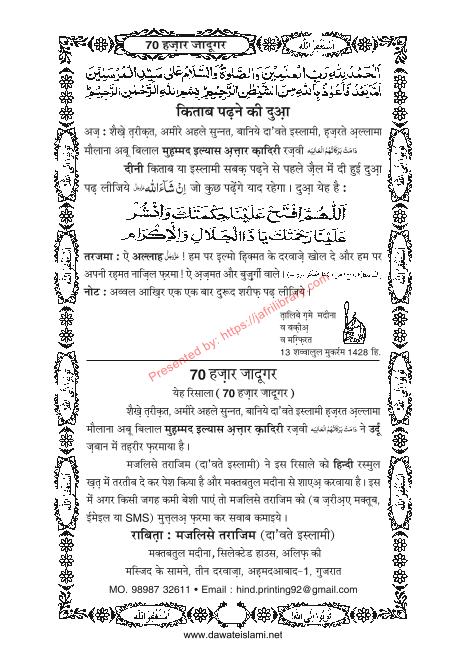 70 हज़ार जादूगर
اَسْتَغْفِرُ اللّٰه
اَلْحَمْدُ لِلّٰهِ رَبِّ الْعٰلَمِيْنَ وَ الصَّلٰوةُ وَ السَّلَامُ عَلٰى سَيِّدِ الْمُرْسَلِيْنَ
اَمَّا بَعْدُ فَاَعُوْذُ بِاللّٰهِ مِنَ الشَّيْطٰنِ الرَّجِيْمِ بِسْمِ اللّٰهِ الرَّحْمٰنِ الرَّحِيْمِ
किताब पढ़ने की दुआ़
अज़् : शैख़े त़रीक़त, अमीरे अहले सुन्नत, बानिये दा'वते इस्लामी, ह़ज़रते अ़ल्लामा
मौलाना अबू बिलाल मुह़म्मद इल्यास अ़त़्त़ार क़ादिरी रज़वी دَامَتْ بَرَكَاتُهُمُ الْعَالِيَه
दीनी किताब या इस्लामी सबक़ पढ़ने से पहले ज़ैल में दी हुई दुआ़
पढ़ लीजिये اِنْ شَآءَاللّٰه जो कुछ पढ़ेंगे याद रहेगा। दुआ़ येह है :
اَللّٰهُمَّ افْتَحْ عَلَيْنَا حِكْمَتَكَ وَانْشُرْ
عَلَيْنَا رَحْمَتَكَ يَا ذَا الْجَلَالِ وَالْاِكْرَام
तरजमा : ऐ अल्लाह ! हम पर इ़ल्मो ह़िक्मत के दरवाज़े खोल दे और हम पर
अपनी रह़मत नाज़िल फ़रमा ! ऐ अ़ज़मत और बुज़ुर्गी वाले।
नोट : अव्वल आख़िर एक एक बार दुरूद शरीफ़ पढ़ लीजिये।
त़ालिबे ग़मे मदीना
व बक़ीअ़
व मग़्फ़िरत
13 शव्वालुल मुकर्रम 1428 हि.
Presented by: https://jafrilibrary.com
70 हज़ार जादूगर
येह रिसाला ( 70 हज़ार जादूगर )
शैख़े त़रीक़त, अमीरे अहले सुन्नत, बानिये दा'वते इस्लामी ह़ज़रत अ़ल्लामा
मौलाना अबू बिलाल मुह़म्मद इल्यास अ़त़्त़ार क़ादिरी रज़वी دَامَتْ بَرَكَاتُهُمُ الْعَالِيَه ने उर्दू
ज़बान में तह़रीर फ़रमाया है।
मजलिसे तराजिम (दा'वते इस्लामी) ने इस रिसाले को हिन्दी रस्मुल
ख़त़ में तरतीब दे कर पेश किया है और मक्तबतुल मदीना से शाएअ़ करवाया है। इस
में अगर किसी जगह कमी बेशी पाएं तो मजलिसे तराजिम को (ब ज़रीअ़ए मक्तूब,
ईमेइल या SMS) मुत़्त़लअ़ फ़रमा कर सवाब कमाइये।
राबित़ा : मजलिसे तराजिम (दा'वते इस्लामी)
मक्तबतुल मदीना, सिलेक्टेड हाउस, अलिफ़ की
मस्जिद के सामने, तीन दरवाज़ा, अह़मदआबाद-1, गुजरात
MO. 98987 32611 • Email : hind.printing92@gmail.com
اَسْتَغْفِرُ اللّٰه
تُوْبُوْا اِلَى اللّٰه
www.dawateislami.net